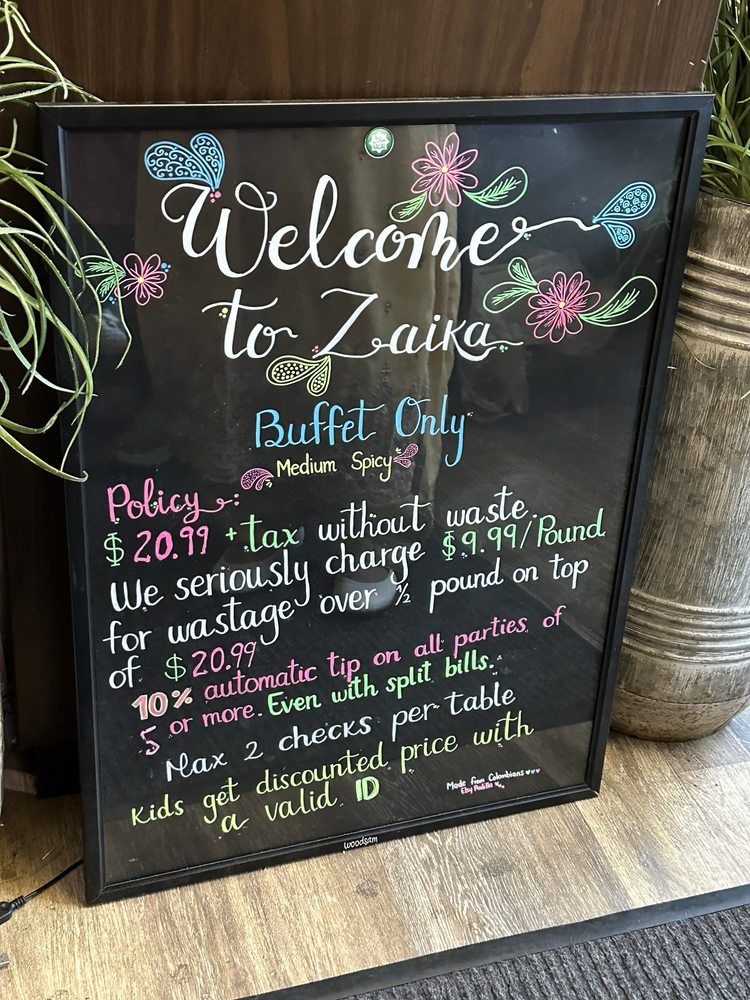 Welcome
to Zaika
Buffet Only
Medium Spicy
Policy:
$20.99 +tax without waste.
We seriously charge $9.99/Pound
for wastage over ½ pound on top
of $20.99
10% automatic tip on all parties of
5 or more. Even with split bills.
Max 2 checks per table
Kids get discounted price with
a valid ID
Made from Colombians
Elsy Padilla
woodsam